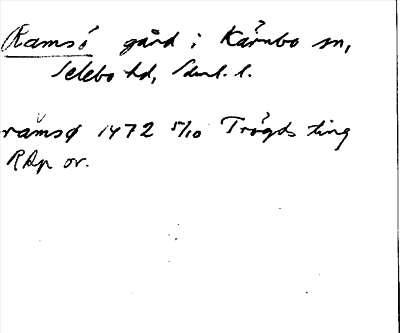 Ramsö gård i Kärnbo sn,
Selebo hd, Söml. l.
ramsø 1472 5/10 Trögds ting
RAp or.